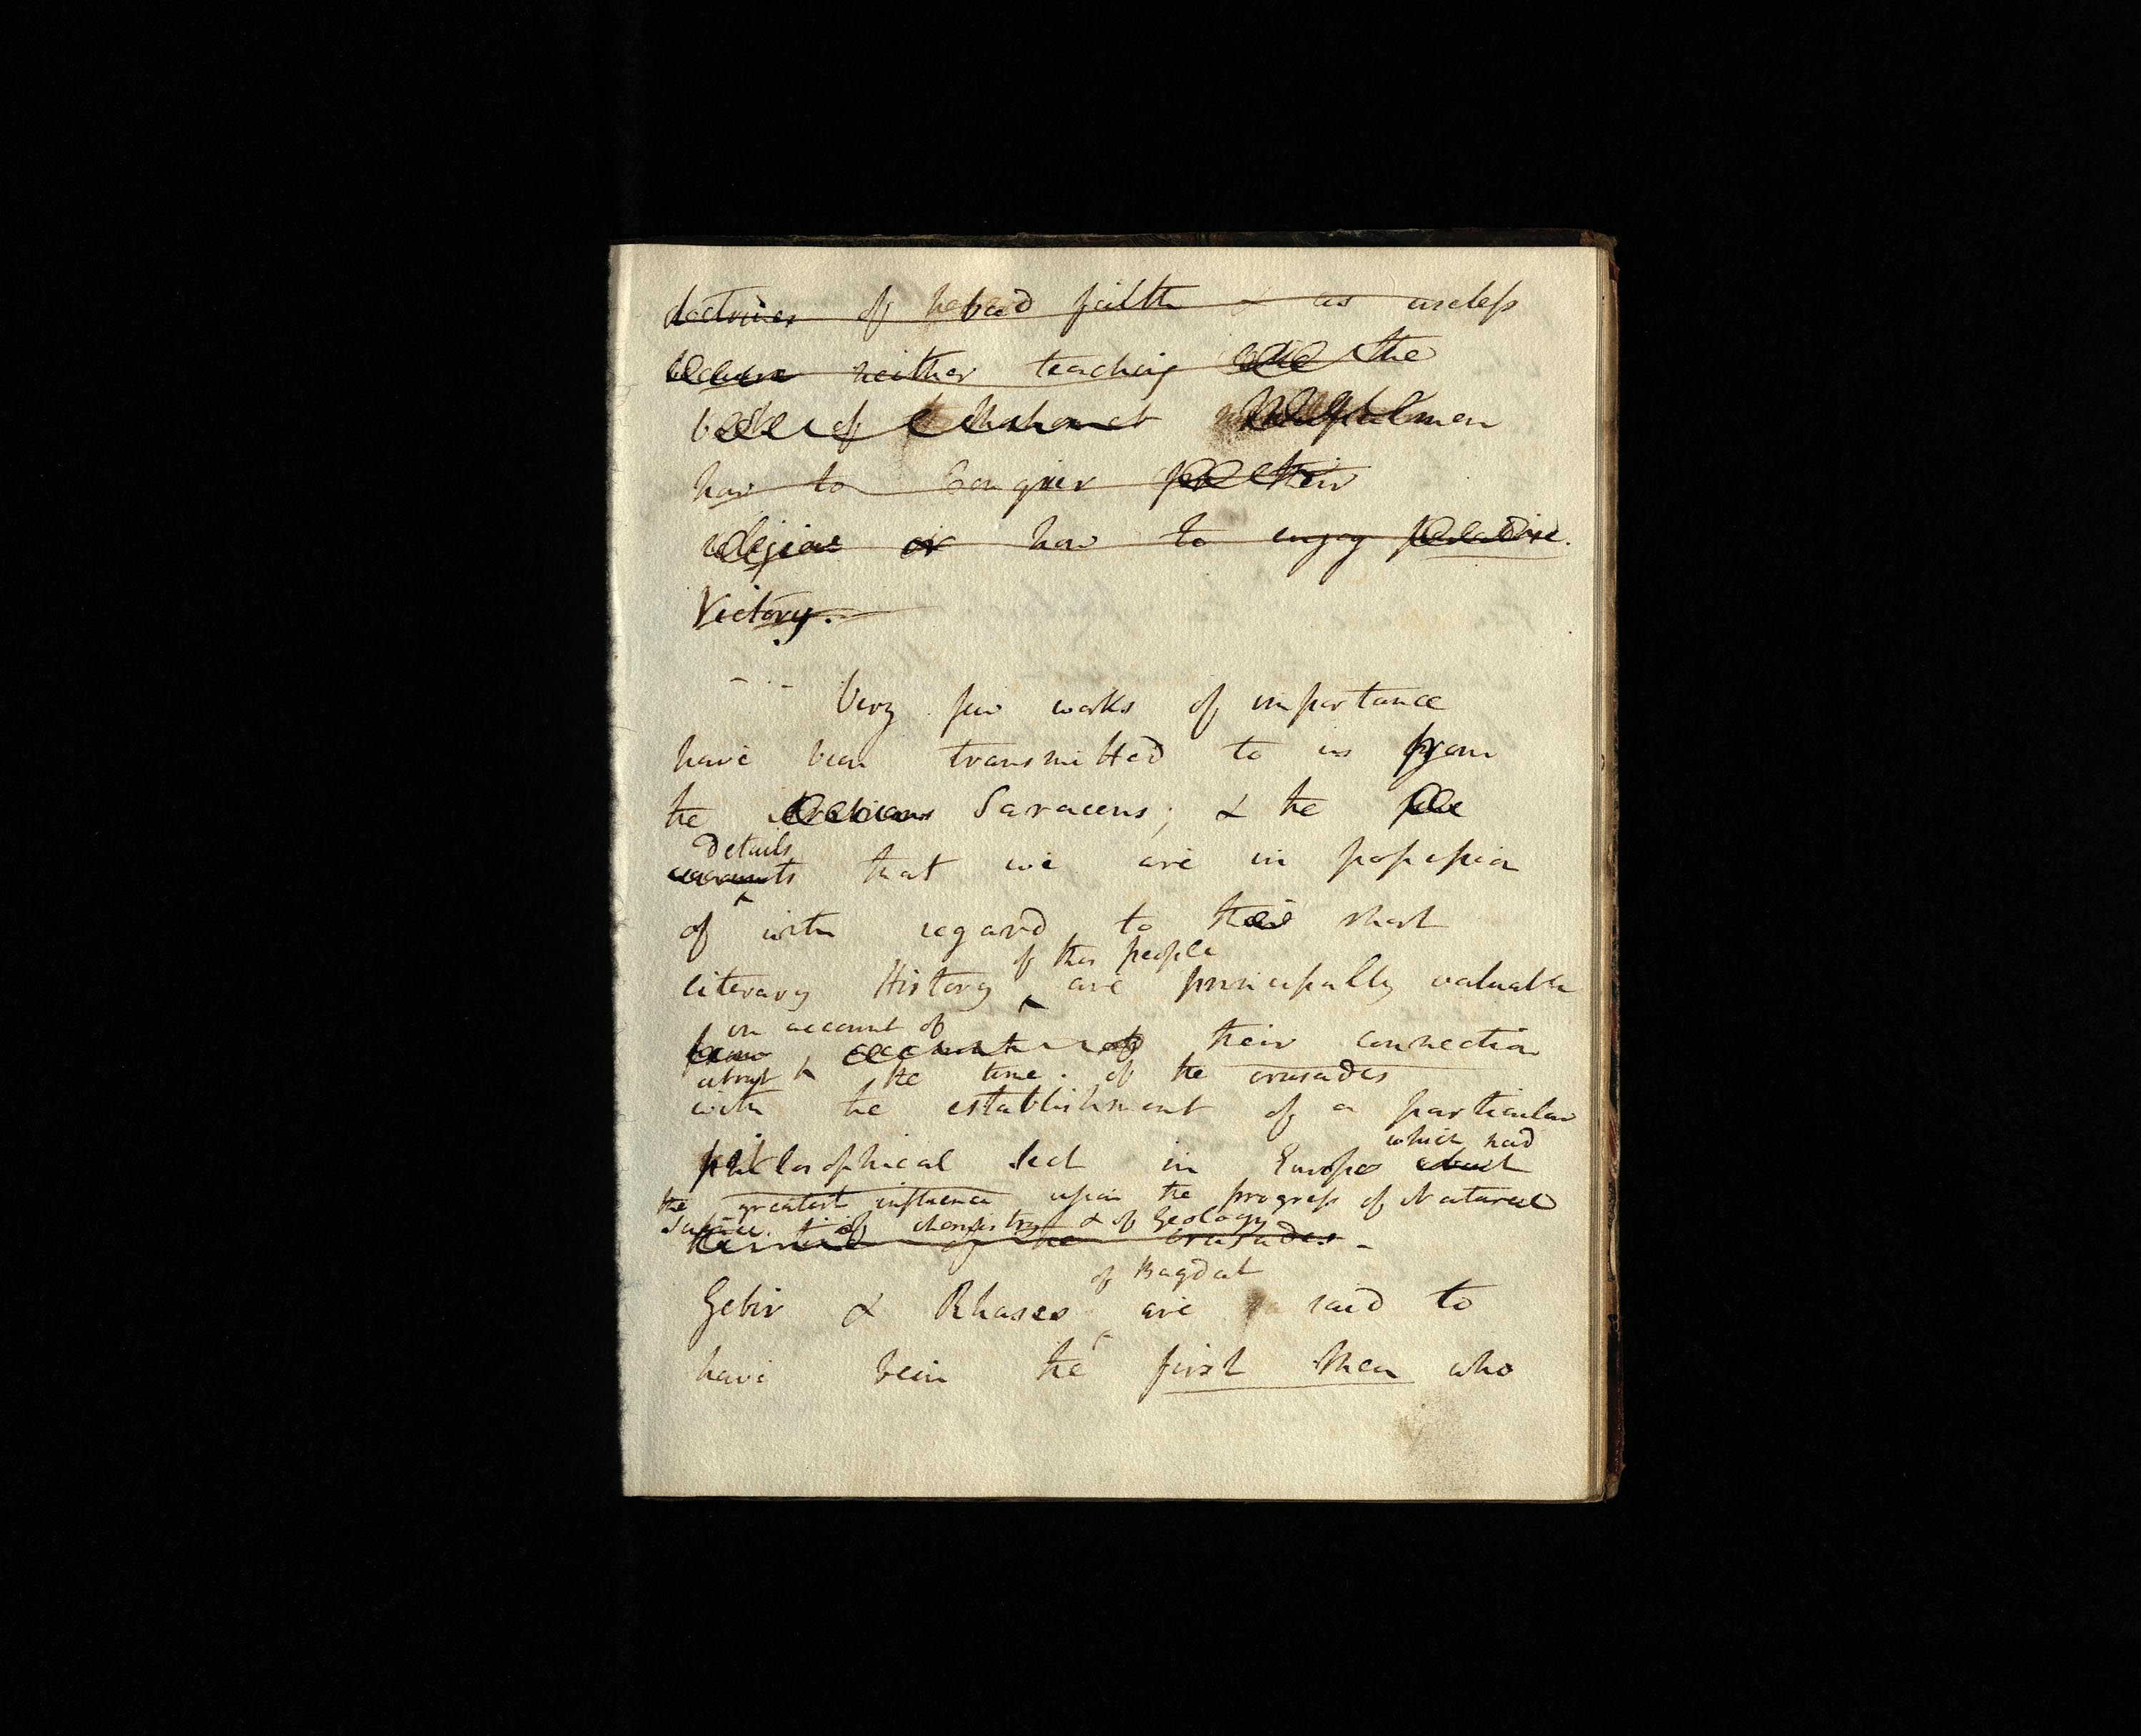 doctrines of h bad faith & as useless
because neither teaching the
of Mahomet men
how to Conquer for their
religion or how to enjoy paradise.
Victory.
Very few works of importance
have been transmitted to us from
the Arabians Saracens; & the few
details
accounts that we are in possession
of with regard to the short
of this people
literary History are principally valuable
on account of
from account of their connection
about the time of the crusades
with the establishment of a particular
which had
philosophical Sect in Europe about
the greatest influence upon the progress of Natural
Science. of chemistry & of Geology
the time of the crusades -
of Bagdat
Gebir & Rhases are said to
have been the first Men who